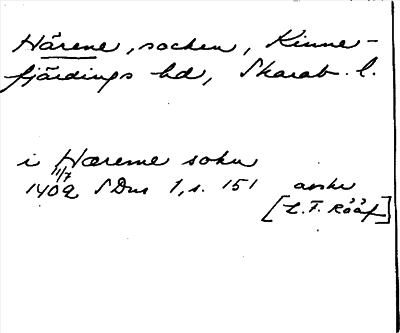 Härene, socken, Kinne-
fjärdings hd, Skarab. l.
i Hærene sokn
11/7
1402 SDns 1, s. 151 avskr
[L. F. Rääf]